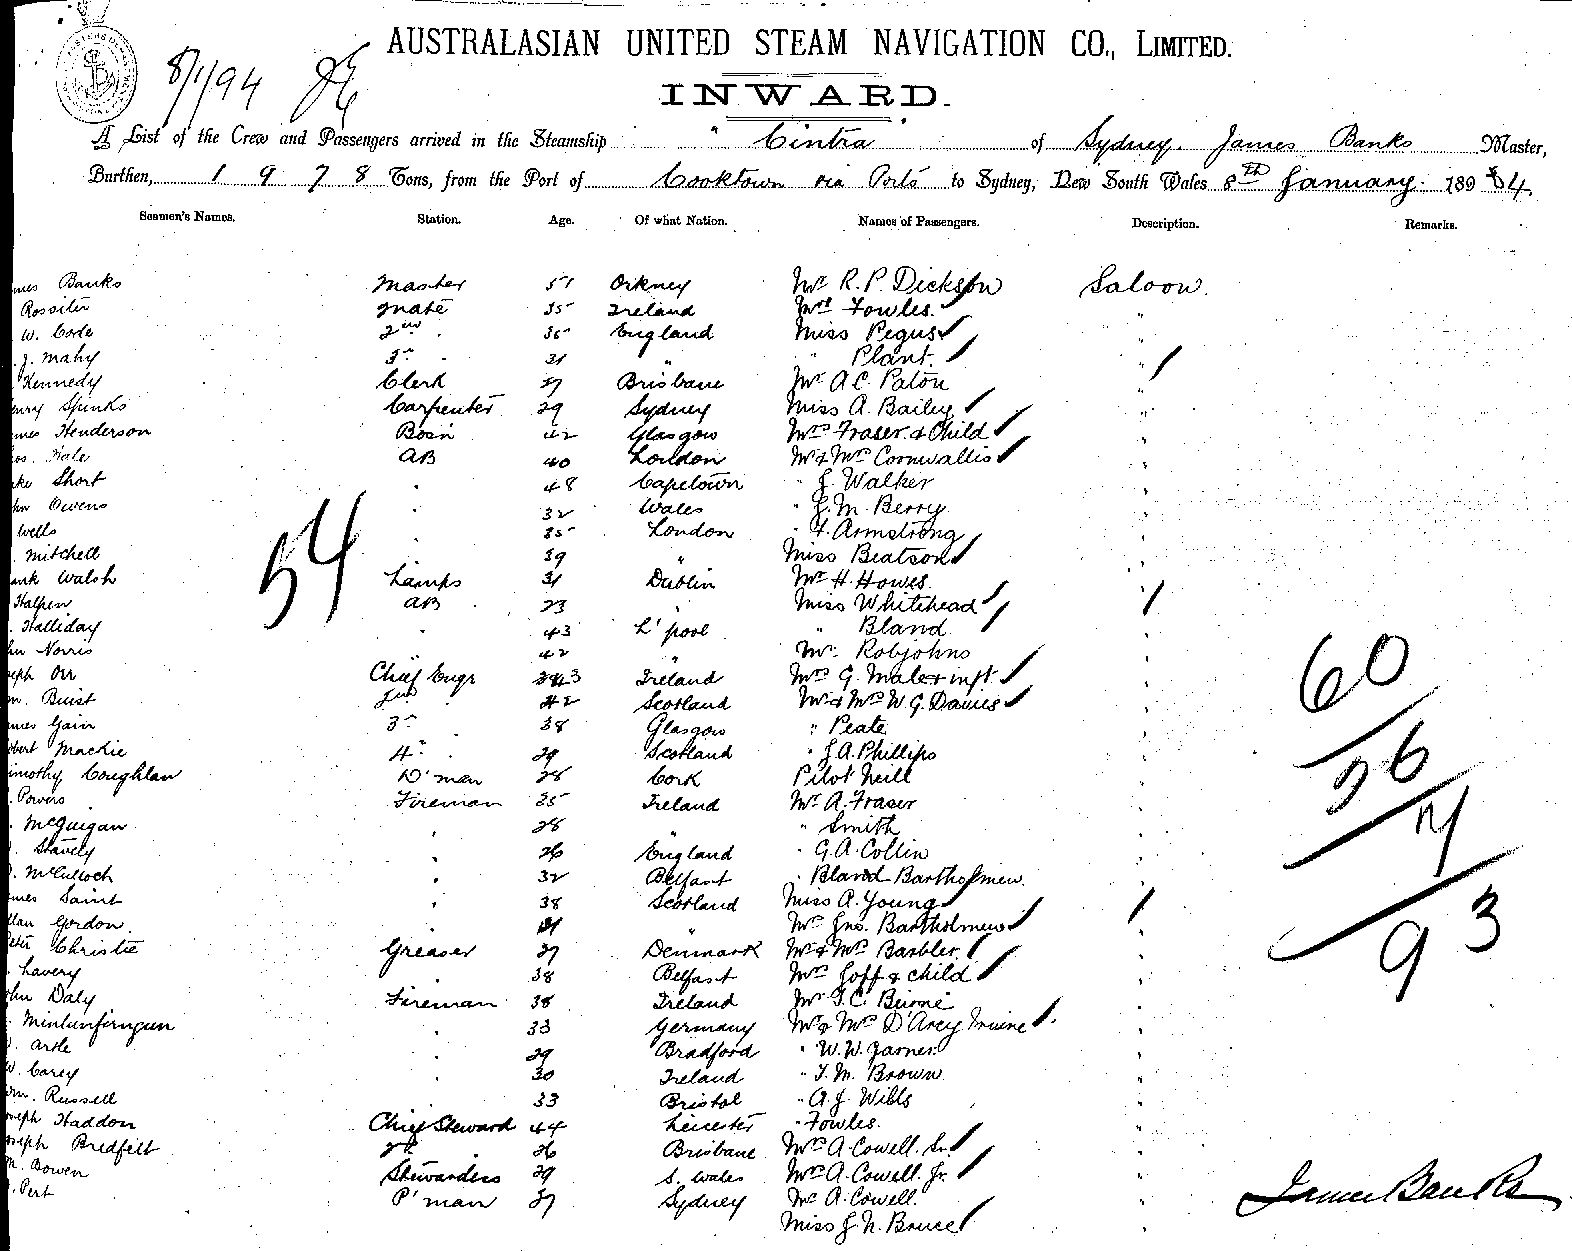 AUSTRALASIAN UNITED STEAM NAVIGATION CO., LIMITED.
8/1/94
INWARD.
A List of the Crew and Passengers arrived in the Steamship "Cintra" of Sydney. James Banks Master,
Burthen, 1978 Tons, from the Port of Cooktown via Ports to Sydney, New South Wales 8th January. 1894.
Seamen's Names. Station. Age. Of what Nation. Names of Passengers. Description. Remarks.
mes Banks Master 51 Orkney Mr R. P. Dickson Saloon.
Rossiter Mate 35 Ireland Mrs Fowles. "
W. Code 2nd " England Miss Pegus "
J. Mahy 3rd " 31 " " Plant. "
Kennedy Clerk Brisbane Mr A C. Paton "
nry Spinks Carpenter 29 Sydney Miss A. Bailey "
mes Henderson Bosn 42 Glasgow Mrs Fraser & Child "
os. Hale AB 40 London Mr & Mrs Cornwallis "
ke Short " 48 Capetown " J. Walker "
hn Owens " 32 Wales " J. M. Berry "
Wells " 35 London " F. Armstrong "
Mitchell " 39 " Miss Beatson "
ank Walsh Lamps 31 Dublin Mr H. Howes. "
Halpen AB 23 " Miss Whitehead "
. Halliday " 43 L'pool " Bland "
hn Norris " 42 " Mr. Robjohns "
54
eph Orr Chief Engr 43 Ireland Mrs G. Maler inft "
m. Buist 2nd 42 Scotland Mr & Mrs W. G. Davies "
mes Gain 3rd 38 Glasgow " Peate "
obert Mackie 4th 29 Scotland " J. A. Phillips "
imothy Coughlan D'man 28 Cork Pilot Neill "
. Powers Fireman 35 Ireland Mr A. Fraser "
. McGuigan " 28 " " Smith "
. Stavely " 26 England " G. A. Collin "
. McCulloch " 32 Belfast " Bland Bartholmew. "
mes Saint " 38 Scotland Miss A. Young "
llan Gordon. " 31 " Mrs Jno. Bartholmew "
eter Christie Greaser Denmark Mr & Mrs Barbler. "
. Lavery " 38 Belfast Mrs Goff & child "
ohn Daly Fireman 38 Ireland Mr T. C. Beirne "
" 33 Germany Mr & Mrs D'Arcy Irvine "
. Arde " 29 Bradford " W. W. Garner "
W. Carey " 30 Ireland " T. M. Brown "
m. Russell " 33 Bristol " A. J. Wills "
oseph Haddon Chief Steward 44 Leicester " Fowles. "
oseph Bredfelt 2nd 26 Brisbane Mrs A. Cowell. Sr. "
m. Bowen Stewardess 29 S. Wales Mrs A. Cowell. Jr. "
. Pert P'man Sydney Mr A. Cowell. "
Miss J. N. Bruce "
60
26
7
93
James Banks